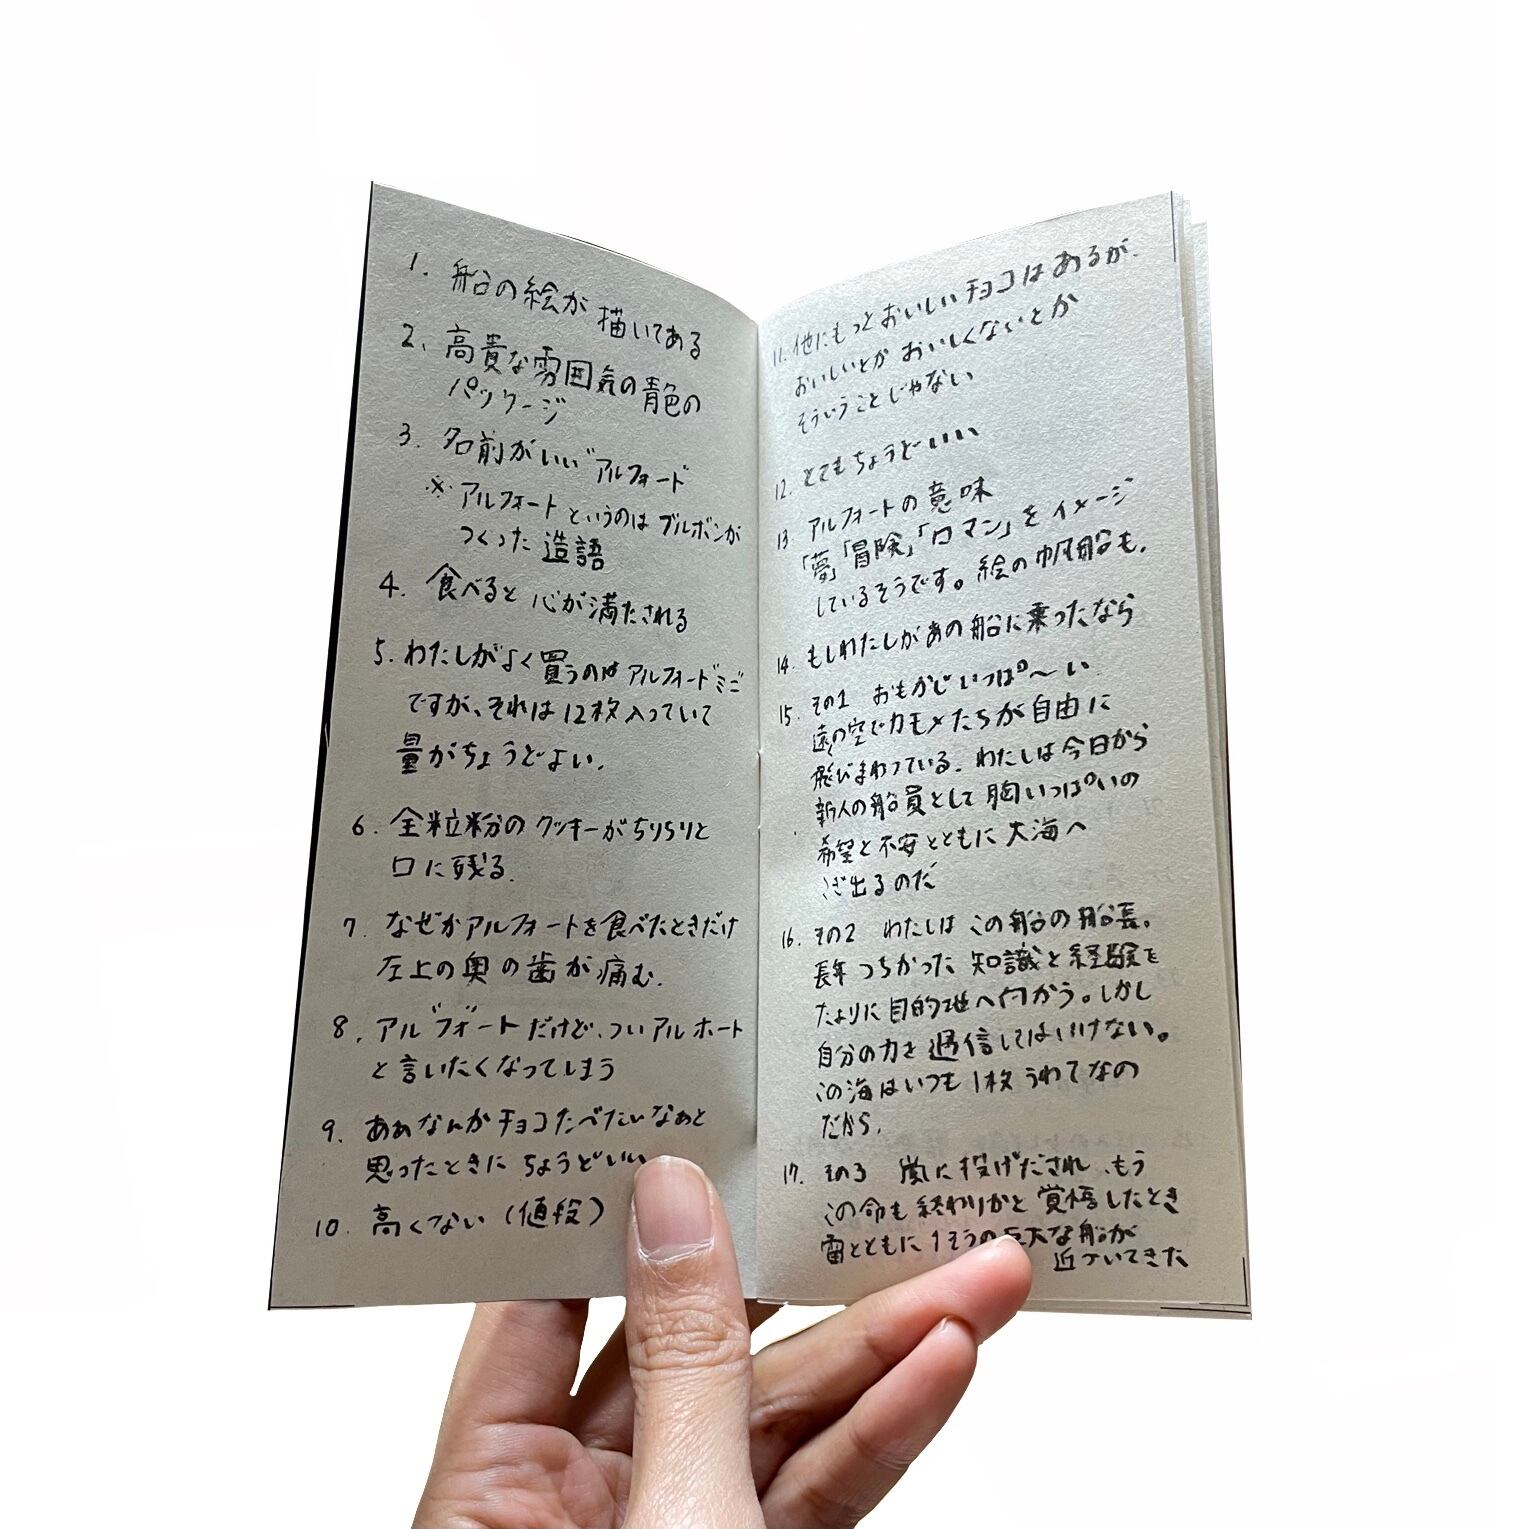 1. 船の絵が描いてある
2. 高貴な雰囲気の青色の
パッケージ
3. 名前がいい"アルフォード
※アルフォートというのはブルボンが
つくった造語
4. 食べると心が満たされる
5. わたしがよく買うのはアルフォードミニ
ですが、それは12枚入っていて
量がちょうどよい.
6. 全粒粉のクッキーがちりちりと
口に残る.
7. なぜかアルフォートを食べたときだけ
左上の奥の歯が痛む.
8. アルフォートだけど、ついアルホート
と言いたくなってしまう
9. あぁなんかチョコたべたいなぁと
思ったときにちょうどいい
10. 高くない(値段)
11. 他にもっとおいしいチョコはあるが.
おいしいとかおいしくないとか
そういうことじゃない
12. とてもちょうどいい
13 アルフォートの意味
「夢」「冒険」「ロマン」をイメージ
しているそうです。絵の帆船も.
14. もしわたしがあの船に乗ったなら
15. その1 おもかじいっぱ〜い
遠くの空でカモメたちが自由に
飛びまわっている. わたしは今日から
新人の船員として胸いっぱいの
希望と不安とともに大海へ
こぎ出るのだ
16. その2 わたしはこの船の船長.
長年つちかった知識と経験を
たよりに目的地へ向かう。しかし
自分の力を過信してはいけない。
この海はいつも1枚うわてなの
だから.
17. その3 嵐に投げだされ、もう
この命も終わりかと覚悟したとき
雷とともに1そうの巨大な船が
近づいてきた